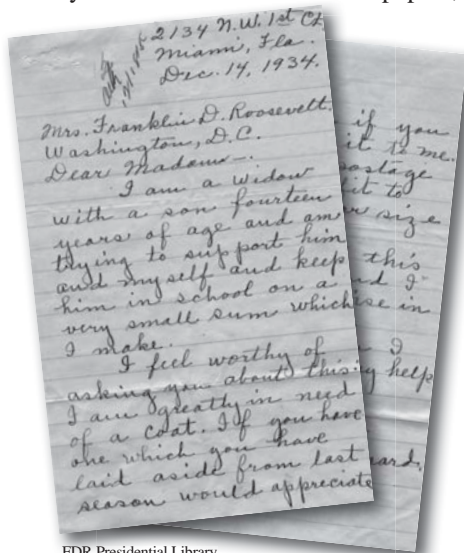 2134 N.W. 1st Ct.
Miami, Fla.
Dec. 14, 1934.
Mrs. Franklin D. Roosevelt.
Washington, D.C.
Dear Madam—.
I am a widow
with a son fourteen
years of age and am
trying to support him
and myself and keep
him in school on a
very small sum which
I make.
I feel worthy of
asking you about this:
I am greatly in need
of a coat. If you have
one which you have
laid aside from last
season would appreciate
if you
it to me.
postage
size
this
I
in
I
help
FDR Presidential Library